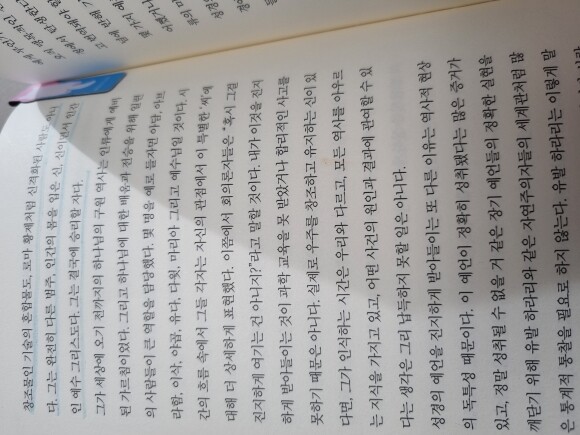 창조물인 기술의 혼합물도, 로마 황제처럼 신격화된 사람도 아니
다. 그는 완전히 다른 범주, 인간의 몸을 입은 신, 신이면서
인 예수 그리스도다. 그는 결국에 승리할 자다.
그가 세상에 오기 전까지의 하나님의 구원 역사는 인류에게 예비
된 가르침이었다. 그리고 하나님에 대한 배움과 전승을 위해 일련
의 사람들이 큰 역할을 담당했다. 몇 명을 예로 들자면 아담, 아브
라함, 이삭, 야곱, 유다, 다윗, 마리아 그리고 예수님일 것이다. 시
간의 흐름 속에서 그들 각자는 자신의 관점에서 이 특별한 '씨'에
대해 더 상세하게 표현했다. 이쯤에서 회의론자들은 "혹시 그걸
진지하게 여기는 건 아니지?"라고 말할 것이다. 내가 이것을 진지
하게 받아들이는 것이 과학 교육을 못 받았거나 합리적인 사고를
못하기 때문은 아니다. 실제로 우주를 창조하고 유지하는 신이 있
다면, 그가 인식하는 시간은 우리와 다르고, 모든 역사를 아우르
는 지식을 가지고 있고, 어떤 사건의 원인과 결과에 관여할 수 있
다는 생각은 그리 납득하지 못할 일은 아니다.
성경의 예언을 진지하게 받아들이는 또 다른 이유는 역사적 현상
의 독특성 때문이다. 이 예언이 정확히 성취됐다는 많은 증거가
있고, 정말 성취될 수 없을 거 같은 장기 예언들의 정확한 실현을
깨닫기 위해 유발 하라리와 같은 자연주의자들의 세계관처럼 많
은 통계적 통찰을 필요로 하지 않는다. 유발 하라리는 이렇게 말